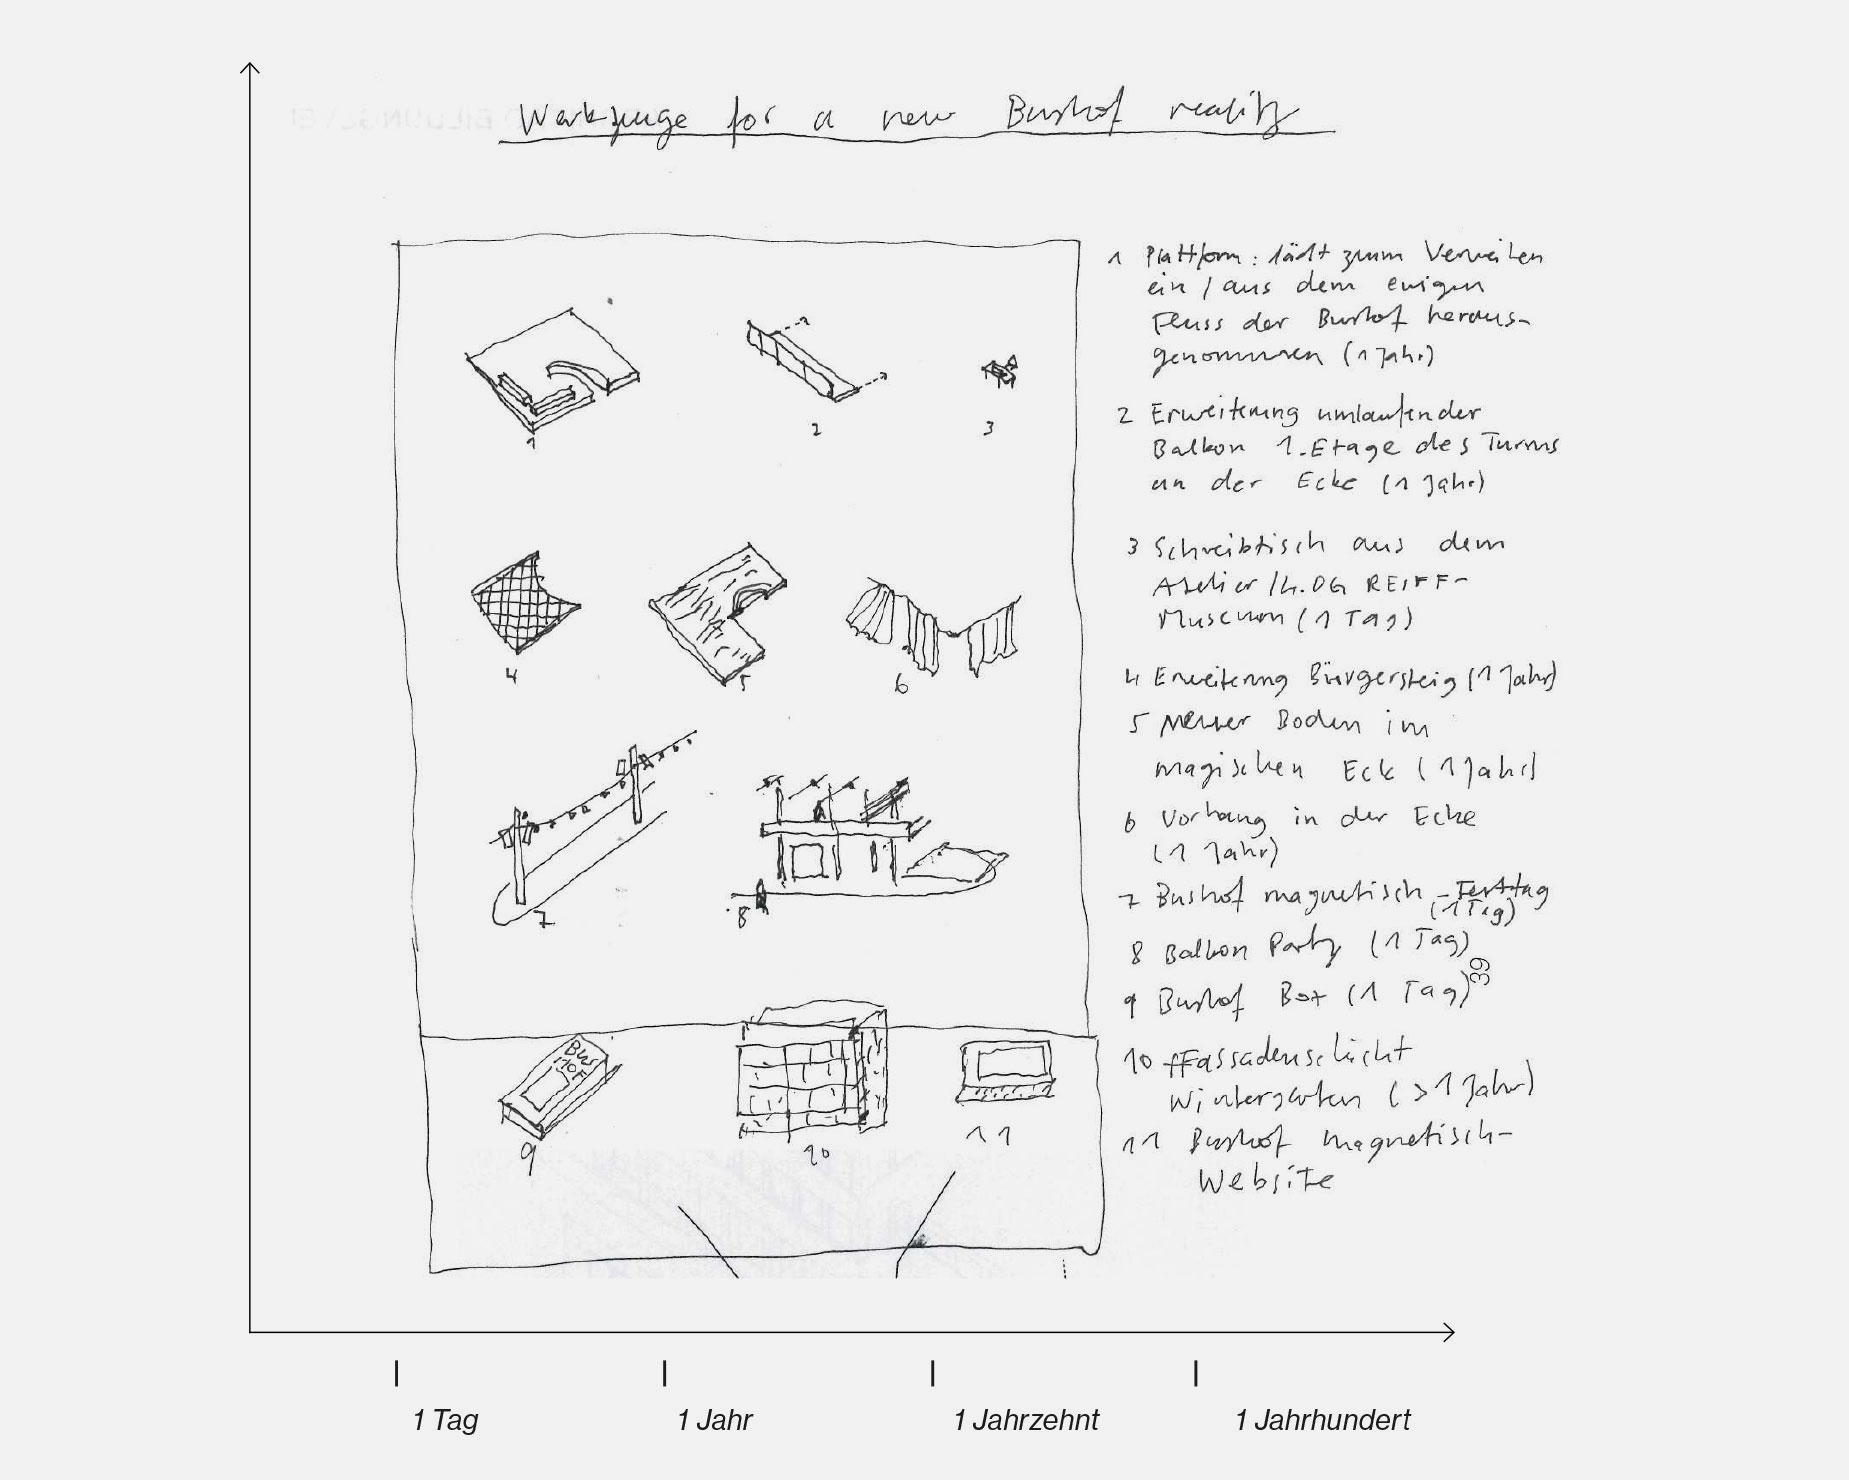 Werkzeuge for a new Bushof reality
1 Plattform: lädt zum Verweilen
ein / aus dem ewigen
Fluss der Bushof heraus-
genommen (1 Jahr)
2 Erweiterung umlaufender
Balkon 1. Etage des Turms
an der Ecke (1 Jahr)
3 Schreibtisch aus dem
Atelier / 4. OG REIFF-
Museum (1 Tag)
4 Erweiterung Bürgersteig (1 Jahr)
5 Neuer Boden im
magischen Eck (1 Jahr)
6 Vorhang in der Ecke
(1 Jahr)
7 Bushof magnetisch - Festtag
(1 Tag)
8 Balkon Party (1 Tag)
39
9 Bushof Box (1 Tag)
10 Fassadenschicht
Wintergarten (>1 Jahr)
11 Bushof magnetisch-
Website
1
2
3
4
5
6
7
8
BUS
HOF
9
10
11
1 Tag
1 Jahr
1 Jahrzehnt
1 Jahrhundert